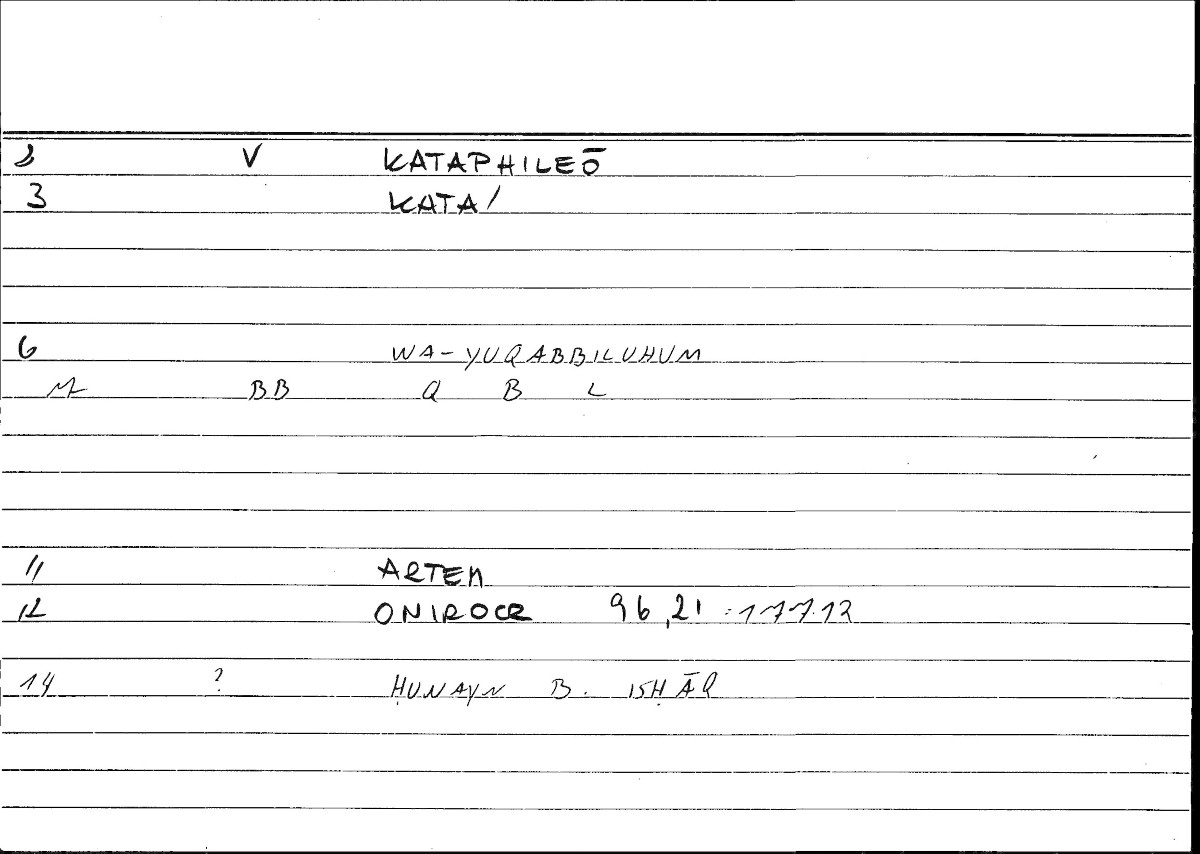 2 V KATAPHILEŌ
3 KATA/
6 WA-YUQABBILUHUM
BB Q B L
11 ARTEM
12 ONIROCR 96,21 : 177.12
14 ? ḤUNAYN B. ISḤĀQ